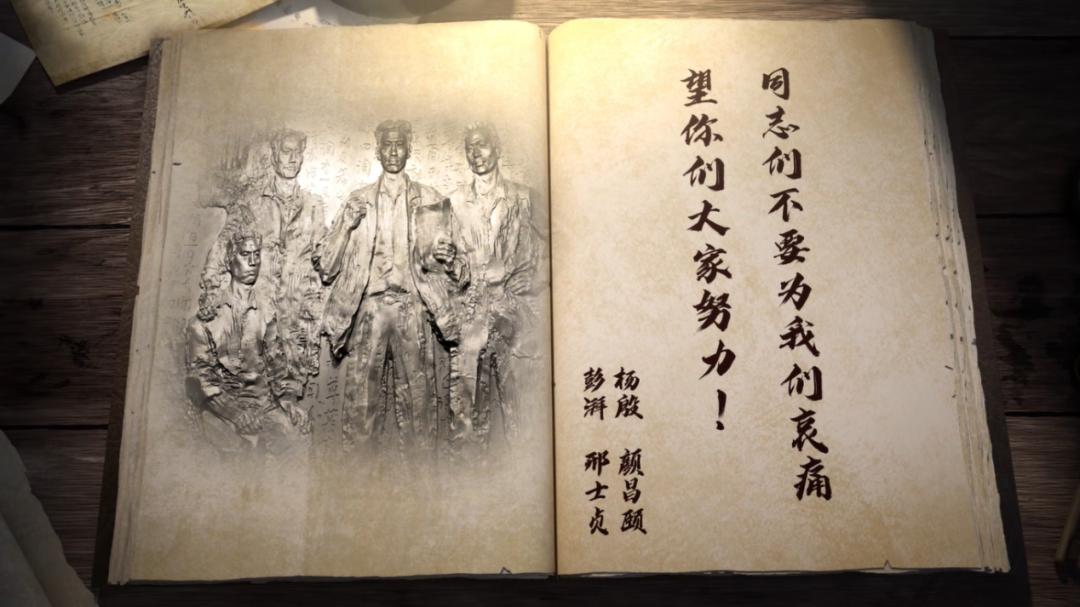 同志们不要为我们哀痛
望你们大家努力！
杨殷 颜昌颐
彭湃 邢士贞